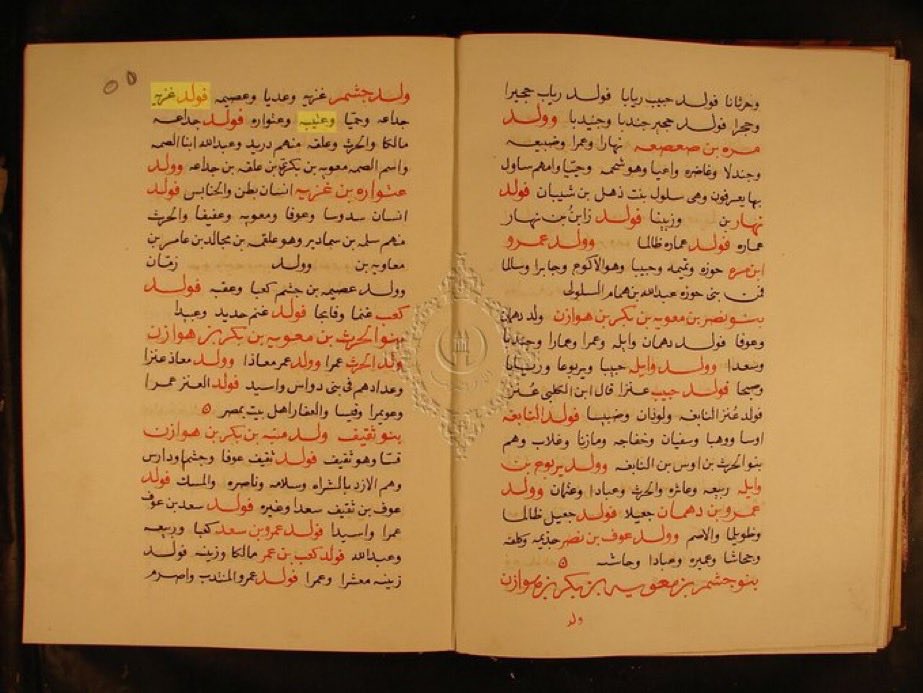 وحرثانا فولد حبيب ريابا فولد رياب حجيرا
وحجرا فولد حجير جندبا وجنيدبا وولد
مره بن صعصعه نهارا وعمرا وضبيعه
وجندلا وغاضره واعيا وهو شحمه وجنيا وامهم سلول
بها يعرفون وهى سلول بنت ذهل بن شيبان فولد
نهار بن وزبينا فولد زابن بن نهار
عماره فولد عماره ظالما وولد عمرو
ابن مره حوزه وتميمه وحبيبا وهو الاكوع وجابرا وسالما
فمن بنى حوزه عبدالله بن همام السلولى
بنو نصر بن معويه بن بكر بن هوازن ولد دهمان
وعوفا فولد دهمان وايله وعمرا وعمارا وجندبا
وسعدا وولد وايله حبيبا ويربوعا وزبيانا
وصبحا فولد حبيب عنزا قال ابن الكلبى عُنَز
فولد عُنز النابغه ولوذان وضبيبا فولد النابغه
اوسا ووهبا وسفيان وخفاجه ومازنا وغلاب وهم
بنو الحرث بن اوس بن النابغه وولد يربوع بن
وايله ربيعه وعايره والحرث وعبادا وعثمان وولد
عمرو بن دهمان جعيلا فولد جعيل ظالما
وطويلما والاصم وولد عوف بن نصر حذيمه وكلفه
وجحاشا وعميره وعبادا وحاشه
بنو جشمر بن معويه بن بكر بن هوازن
ولد
٥٥
ولد جشمر غزيه وعديا وعصيمه فولد غزيه
جداعه وحميّا وعتيب وعتواره فولد جداعه
مالكا والحرث وعلقه منهم دريد وعبدالله ابنا الصمه
واسم الصمه معويه بن بكر بن علقه بن جداعه وولد
عتواره بن غزيه انسان بطن والخنابس فولد
انسان سدوسا وعوفا ومعويه وعفيفا والحرث
منهم سلمه بن سمادير وهو علقمه بن مجالد بن عامر بن
معاويه بن وولد زمان
وولد عصيمه بن جشم كعبا وعقبه فولد
كعب غنما وفايحا فولد غنم حديد وعبدا
بنو الحرث بن معويه بن بكر بن هوازن
ولد الحرث عمرا وولد عمر معاذا وولد معاذ عنزا
وعدادهم فى بنى دواس واسيد فولد العنز عمرا
وعويمرا وقيسا والعفار اهل بيت بمصر
بنو ثقيف ولد منبه بن بكر بن هوازن
قسّا وهو ثقيف فولد ثقيف عوفا وجشم ودارس
وهم الازد بالشراه وسلامه وناصره والمسك فولد
عوف بن ثقيف سعدا وغيره فولد سعد بن عوف
عمرا واسيدا فولد عمرو بن سعد كعبا وربيعه
وعبدالله فولد كعب بن عمر مالكا وزينه فولد
زينه معشرا وعمرا فولد عمرو المنتدب واصرم